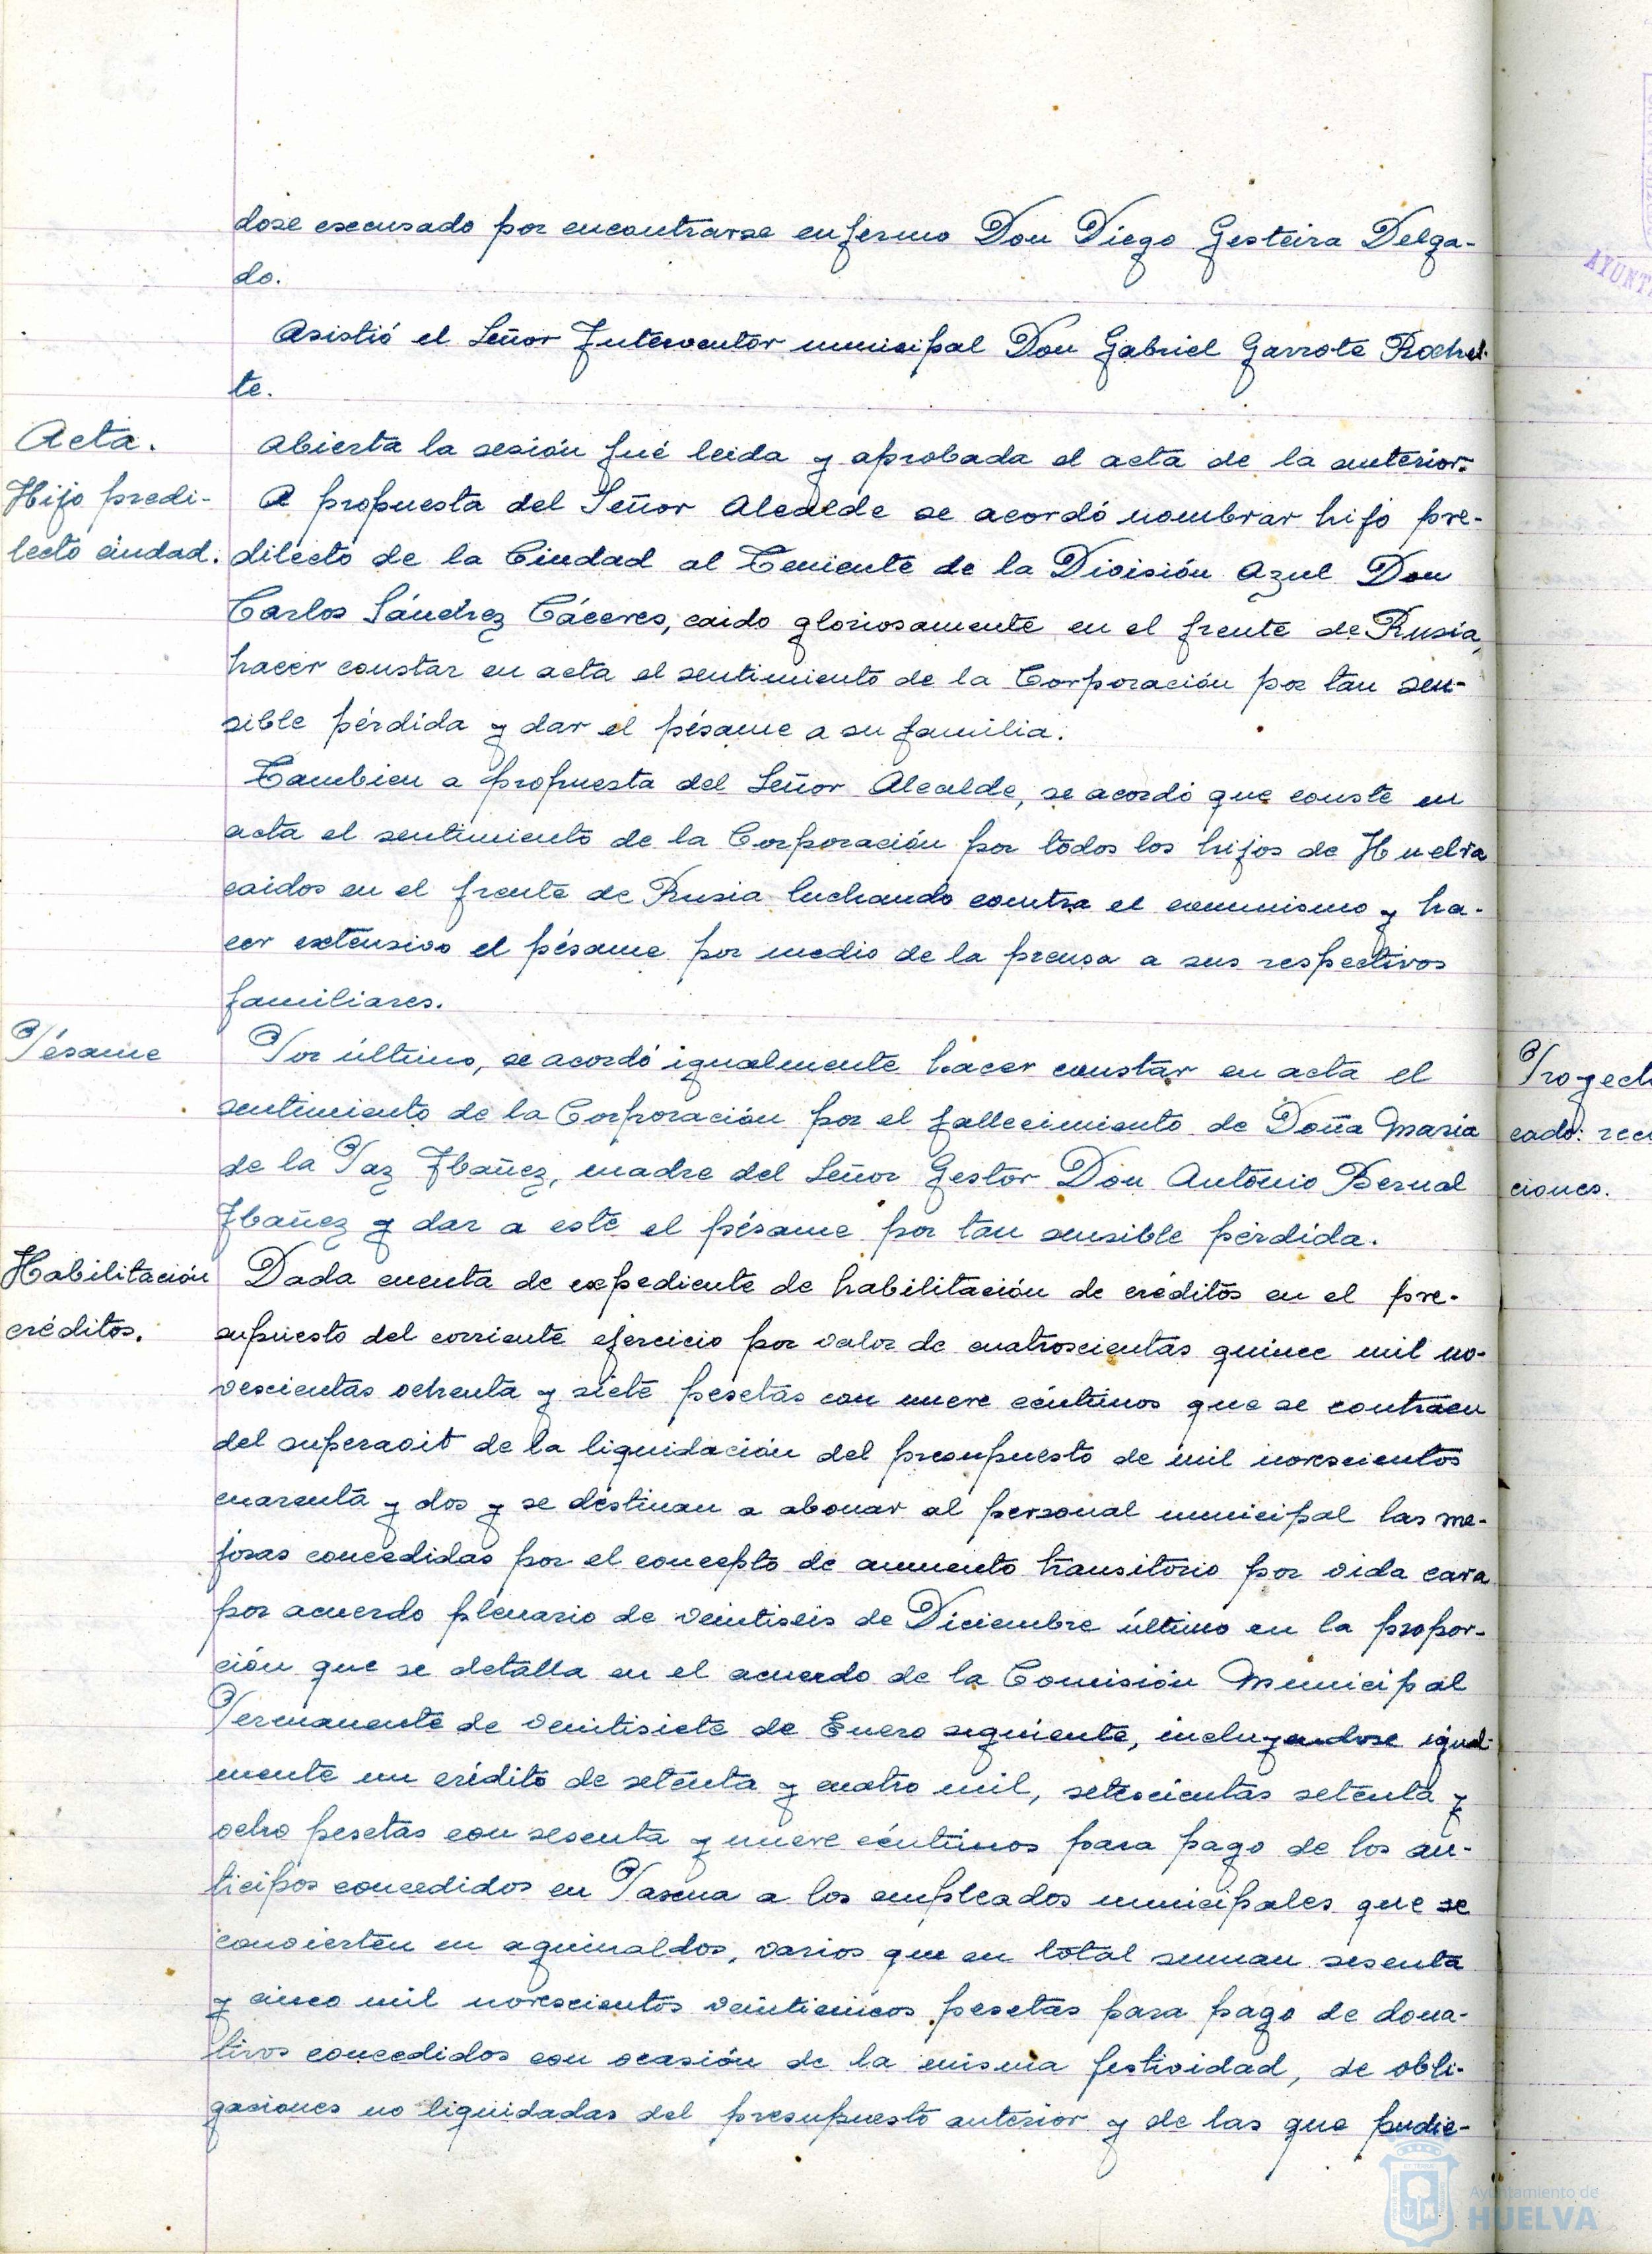 dose escusado por encontrarse enfermo Don Diego Gesteira Delga-
do.
Asistió el Señor Interventor municipal Don Gabriel Garrote Rochel-
te.
Acta.
Abierta la sesión fué leida y aprobada el acta de la anterior.
Hijo predi-
lecto ciudad.
A propuesta del Señor Alcalde se acordó nombrar hijo pre-
dilecto de la Ciudad al Teniente de la División Azul Don
Carlos Sánchez Cáceres, caido gloriosamente en el frente de Rusia,
hacer constar en acta el sentimiento de la Corporación por tan sen-
sible pérdida y dar el pésame a su familia.
Tambien a propuesta del Señor Alcalde, se acordó que conste en
acta el sentimiento de la Corporación por todos los hijos de Huelva
caidos en el frente de Rusia luchando contra el comunismo y ha-
cer extensivo el pésame por medio de la prensa a sus respectivos
familiares.
Pésame
Por último, se acordó igualmente hacer constar en acta el
sentimiento de la Corporación por el fallecimiento de Doña Maria
de la Paz Ibañez, madre del Señor Gestor Don Antonio Bernal
Ibañez y dar a este el pésame por tan sensible pérdida.
Habilitación
créditos.
Dada cuenta de expediente de habilitación de créditos en el pre-
supuesto del corriente ejercicio por valor de cuatroscientas quince mil no-
vescientas ochenta y siete pesetas con nueve céntimos que se contraen
del superavit de la liquidación del presupuesto de mil novescientos
cuarenta y dos y se destinan a abonar al personal municipal las me-
joras concedidas por el concepto de aumento transitorio por vida cara
por acuerdo plenario de veintiseis de Diciembre último en la propor-
ción que se detalla en el acuerdo de la Comisión Municipal
Permanente de venitisiete de Enero seguiente, incluyendose igual-
mente un crédito de setenta y cuatro mil, setescientas setenta y
ocho pesetas con sesenta y nueve céntimos para pago de los an-
ticipos concedidos en Pascua a los empleados municipales que se
convierten en aguinaldos, varios que en total suman sesenta
y cinco mil novescientos veinticincos pesetas para pago de dona-
tivos concedidos con ocasión de la misma festividad, de obli-
gaciones no liquidadas del presupuesto anterior y de las que pudie-
Proyect
cado: rec
ciones.
AYUNT
Ayuntamiento de
HUELVA